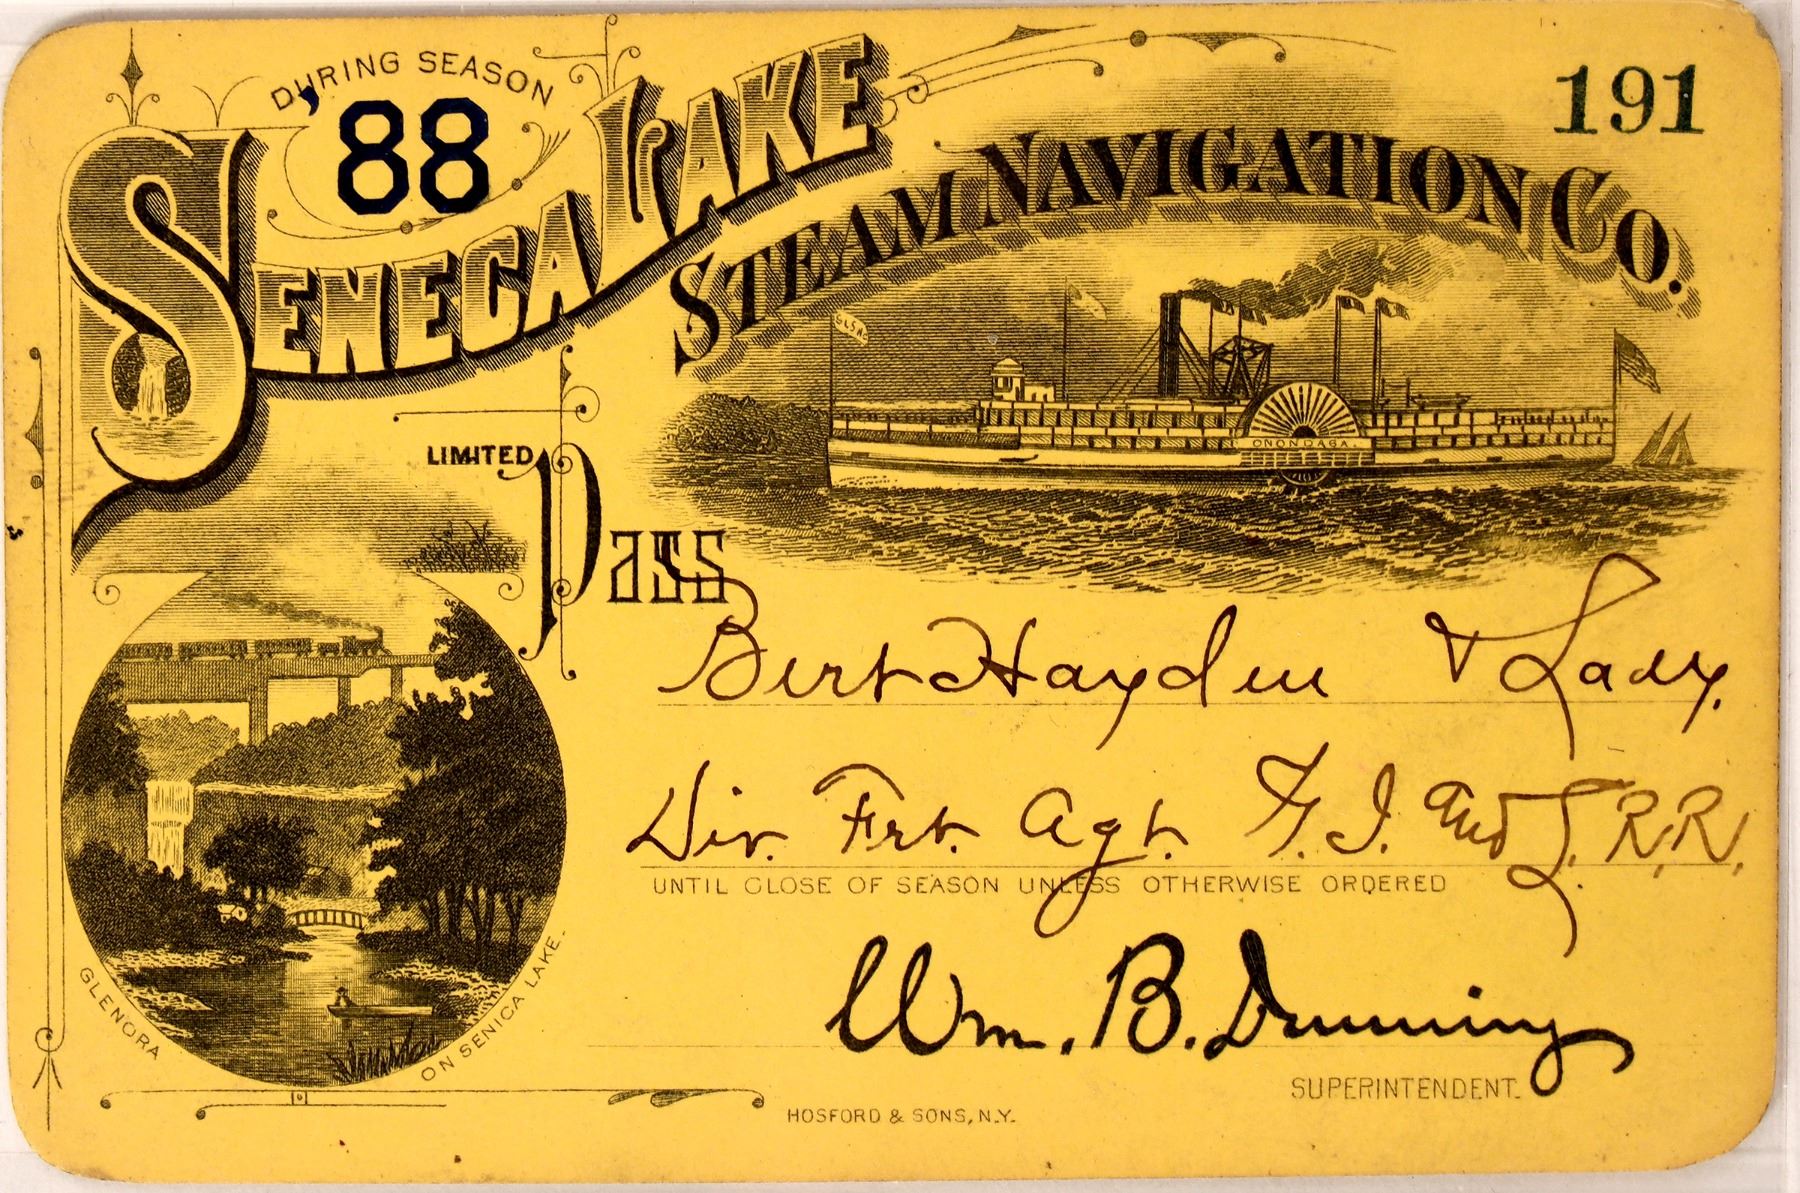 DURING SEASON
'88
191
SENECA LAKE
STEAM NAVIGATION CO.
ONONDAGA
LIMITED
Pass
Bert Hayden & Lady.
Div. Frt. Agt. F. I. and L. R.R.
UNTIL CLOSE OF SEASON UNLESS OTHERWISE ORDERED
Wm. B. Dunning
SUPERINTENDENT.
GLENORA ON SENICA LAKE.
HOSFORD & SONS, N.Y.